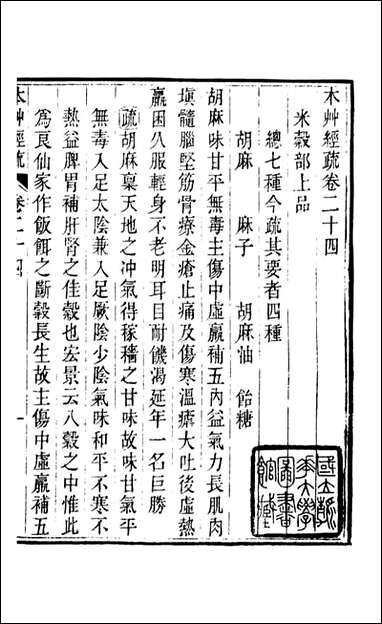 本艸經疏卷二十四
米穀部上品
總七種今疏其要者四種
胡麻 麻子 胡麻油 飴糖
胡麻味甘平無毒主傷中虛羸補五內益氣力長肌肉
塡髓腦堅筋骨療金瘡止痛及傷寒溫瘧大吐後虛熱
羸困久服輕身不老明耳目耐饑渴延年一名巨勝
疏胡麻稟天地之冲氣得稼穡之甘味故味甘氣平
無毒入足太陰兼入足厥陰少陰氣味和平不寒不
熱益脾胃補肝腎之佳穀也宏景云八穀之中惟此
爲良仙家作飯餌之斷穀長生故主傷中虛羸補五
本艸經疏 卷二十四
國立
大學
圖書
館藏